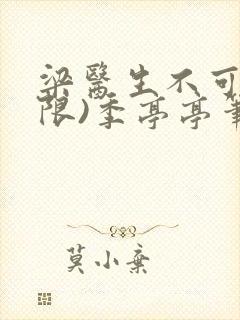 梁醫生不可
限)季亭亭筆
莫小棄